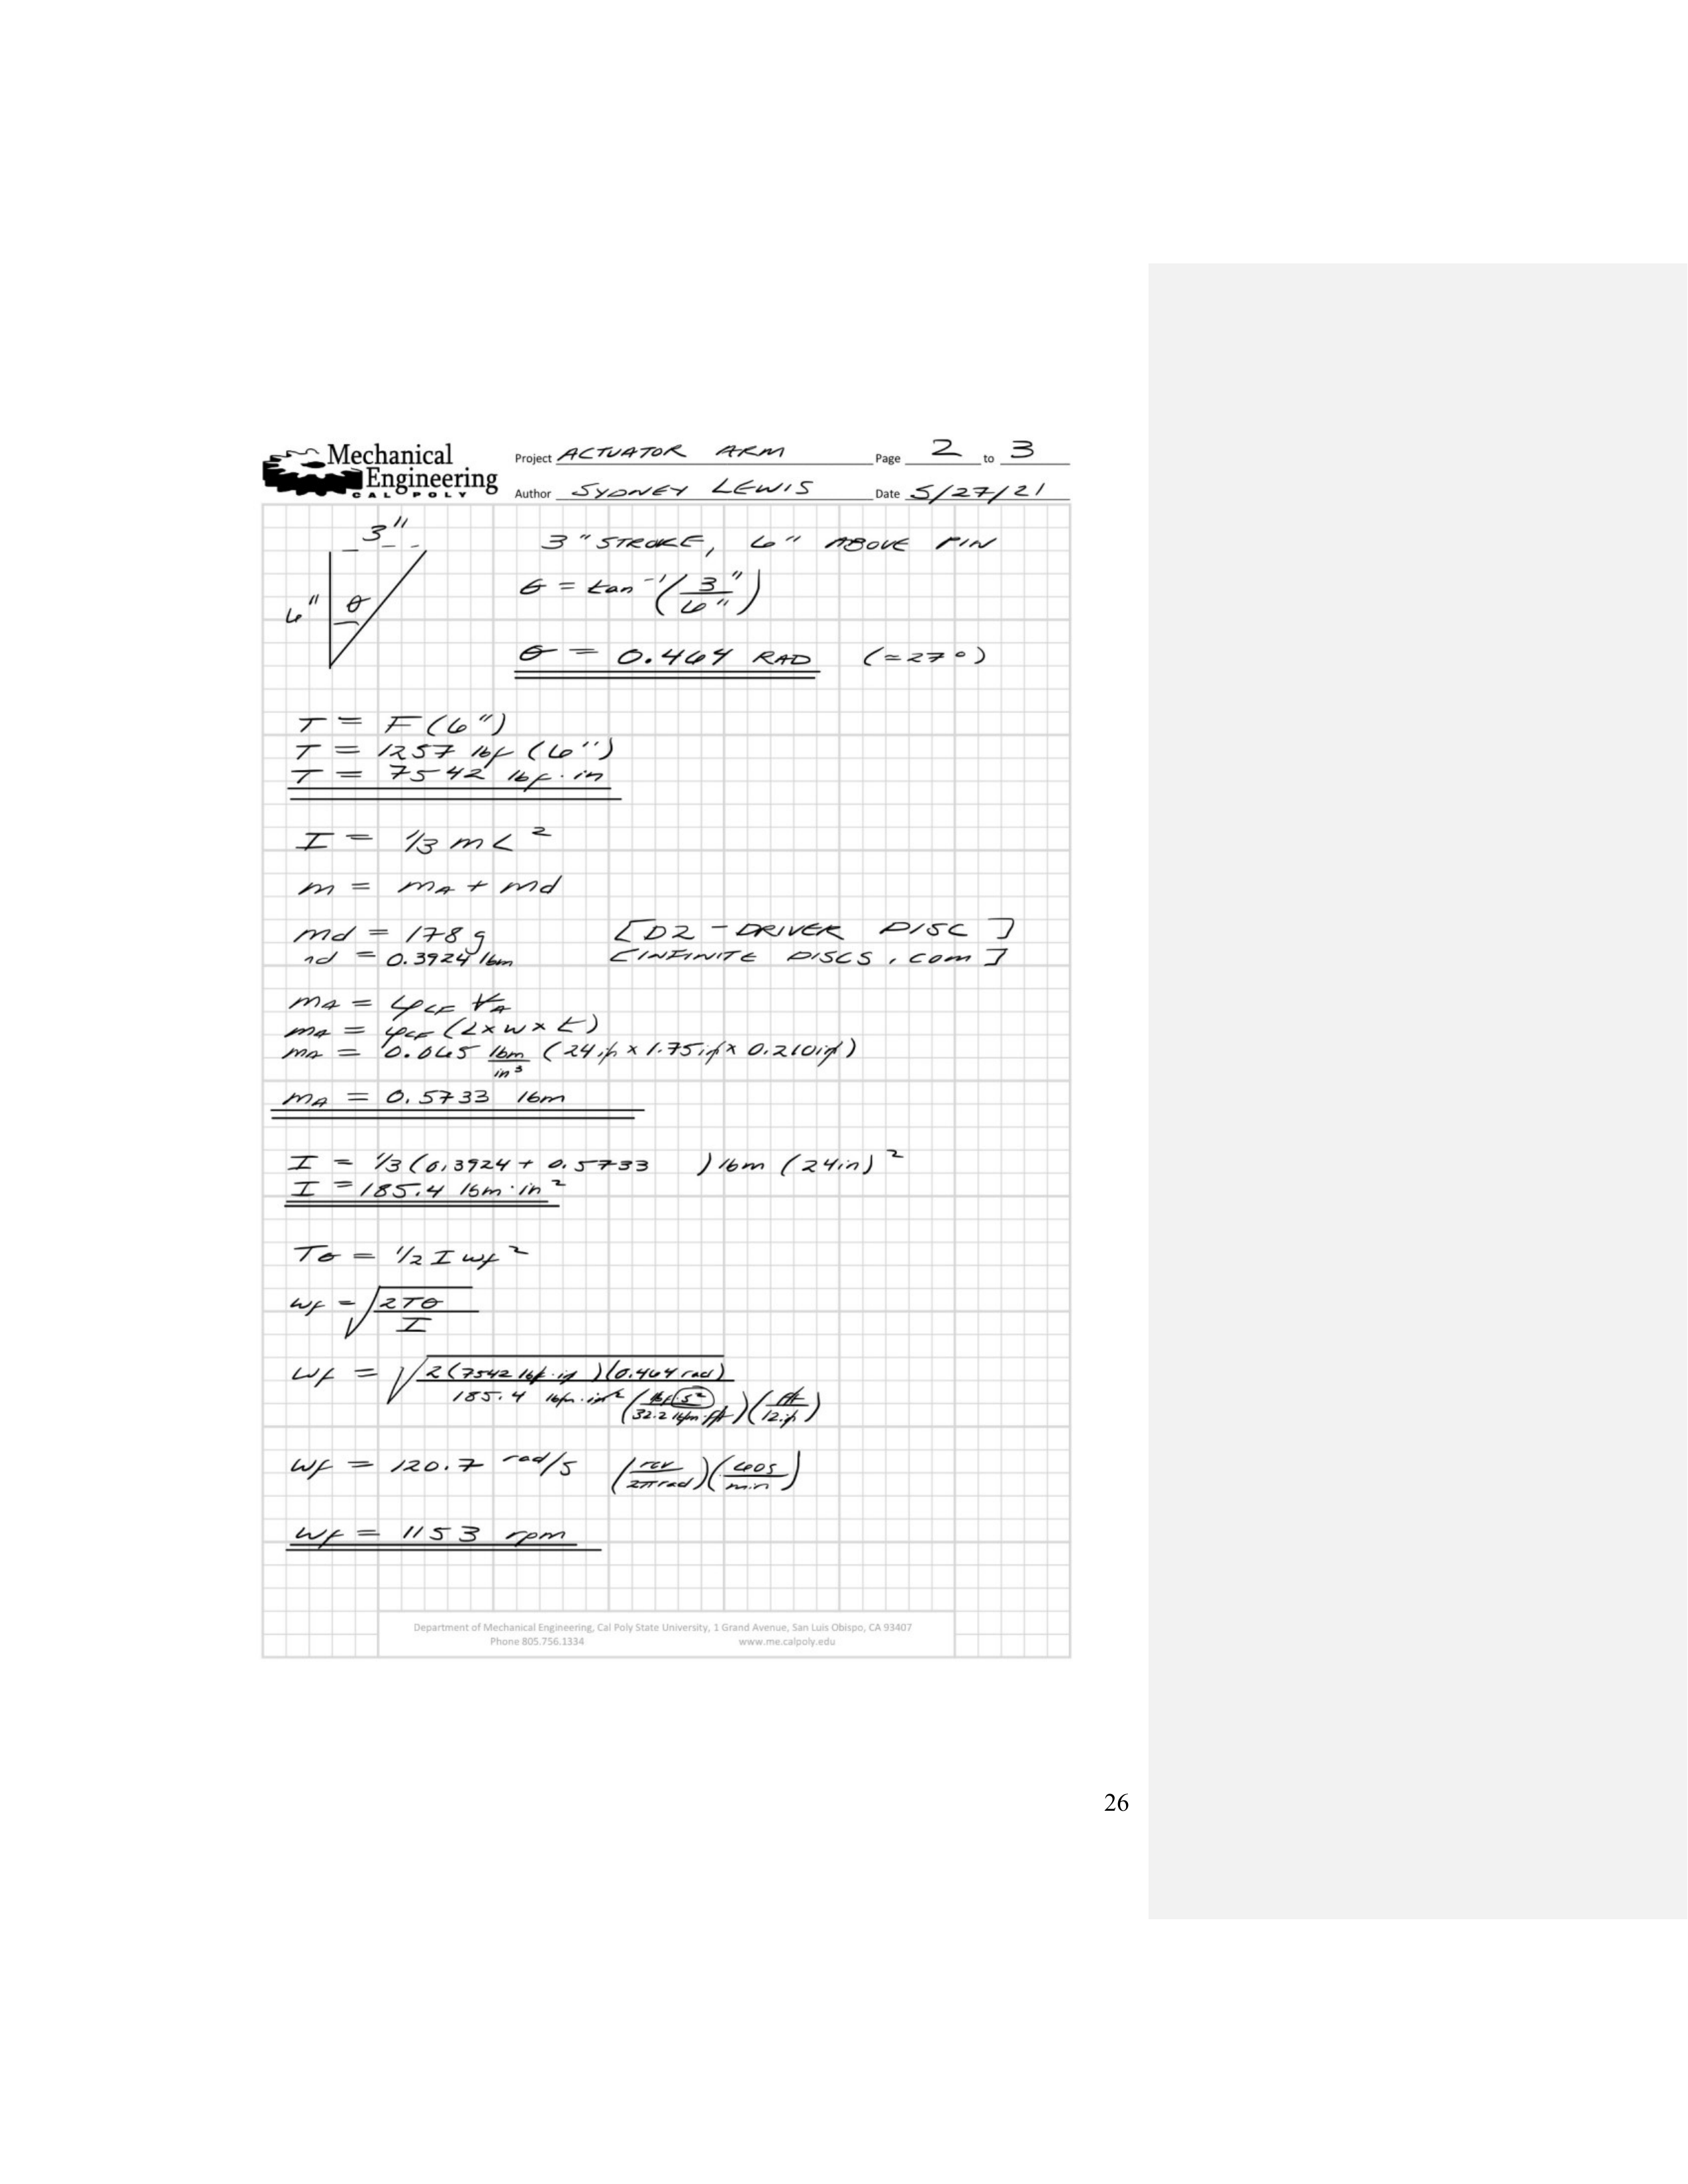 Mechanical
Engineering
CAL POLY
Project ACTUATOR ARM Page 2 to 3
Author SYDNEY LEWIS Date 5/27/21
3"
6" θ
3" STROKE, 6" ABOVE PIN
θ = tan⁻¹(3"/6")
θ = 0.464 RAD (≈27°)
T = F(6")
T = 1257 lbf (6")
T = 7542 lbf·in
I = 1/3 mL²
m = mA + md
md = 178 g [D2 - DRIVER DISC]
md = 0.3924 lbm [INFINITE DISCS.com]
mA = φCF VA
mA = φCF (L×w×t)
mA = 0.065 lbm/in³ (24in × 1.75in × 0.210in)
mA = 0.5733 lbm
I = 1/3 (0.3924 + 0.5733 ) lbm (24in)²
I = 185.4 lbm·in²
Tθ = 1/2 I wf²
wf = √(2Tθ/I)
wf = √(2(7542 lbf·in)(0.464 rad) / 185.4 lbm·in² (lbf·s²/32.2 lbm·ft)(ft/12in))
wf = 120.7 rad/s (rev/2π rad)(60s/min)
wf = 1153 rpm
Department of Mechanical Engineering, Cal Poly State University, 1 Grand Avenue, San Luis Obispo, CA 93407
Phone 805.756.1334 www.me.calpoly.edu
26